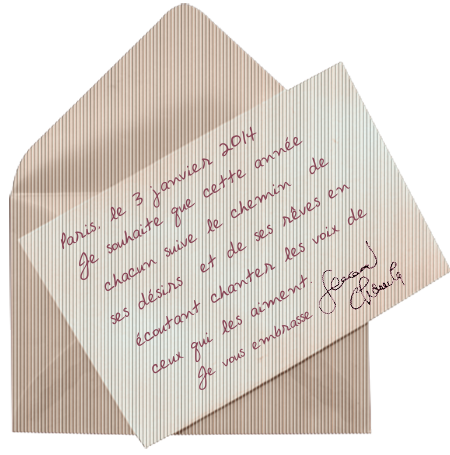 Paris, le 3 janvier 2014
Je souhaite que cette année
chacun suive le chemin de
ses désirs et de ses rêves en
écoutant chanter les voix de
ceux qui les aiment.
Je vous embrasse